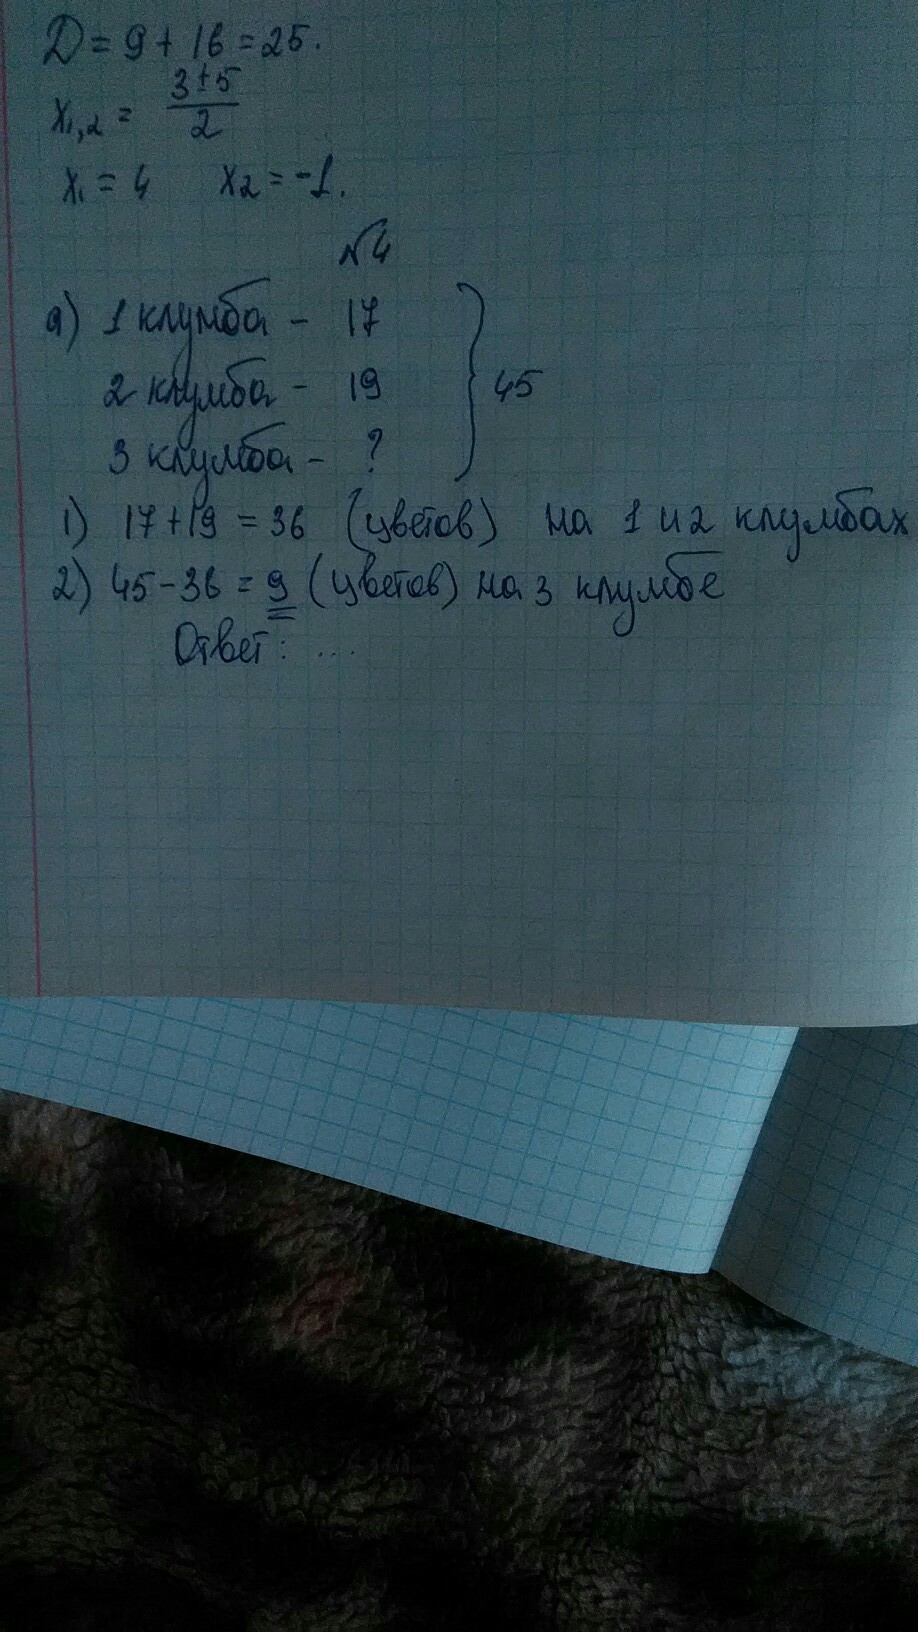 D = 9 + 16 = 25.
x₁,₂ = (3±5)/2
x₁ = 4 x₂ = -1.
№4
а) 1 клумба - 17
2 клумба - 19 } 45
3 клумба - ?
1) 17+19 = 36 (цветов) на 1 и 2 клумбах
2) 45-36 = 9 (цветов) на 3 клумбе
Ответ: ...